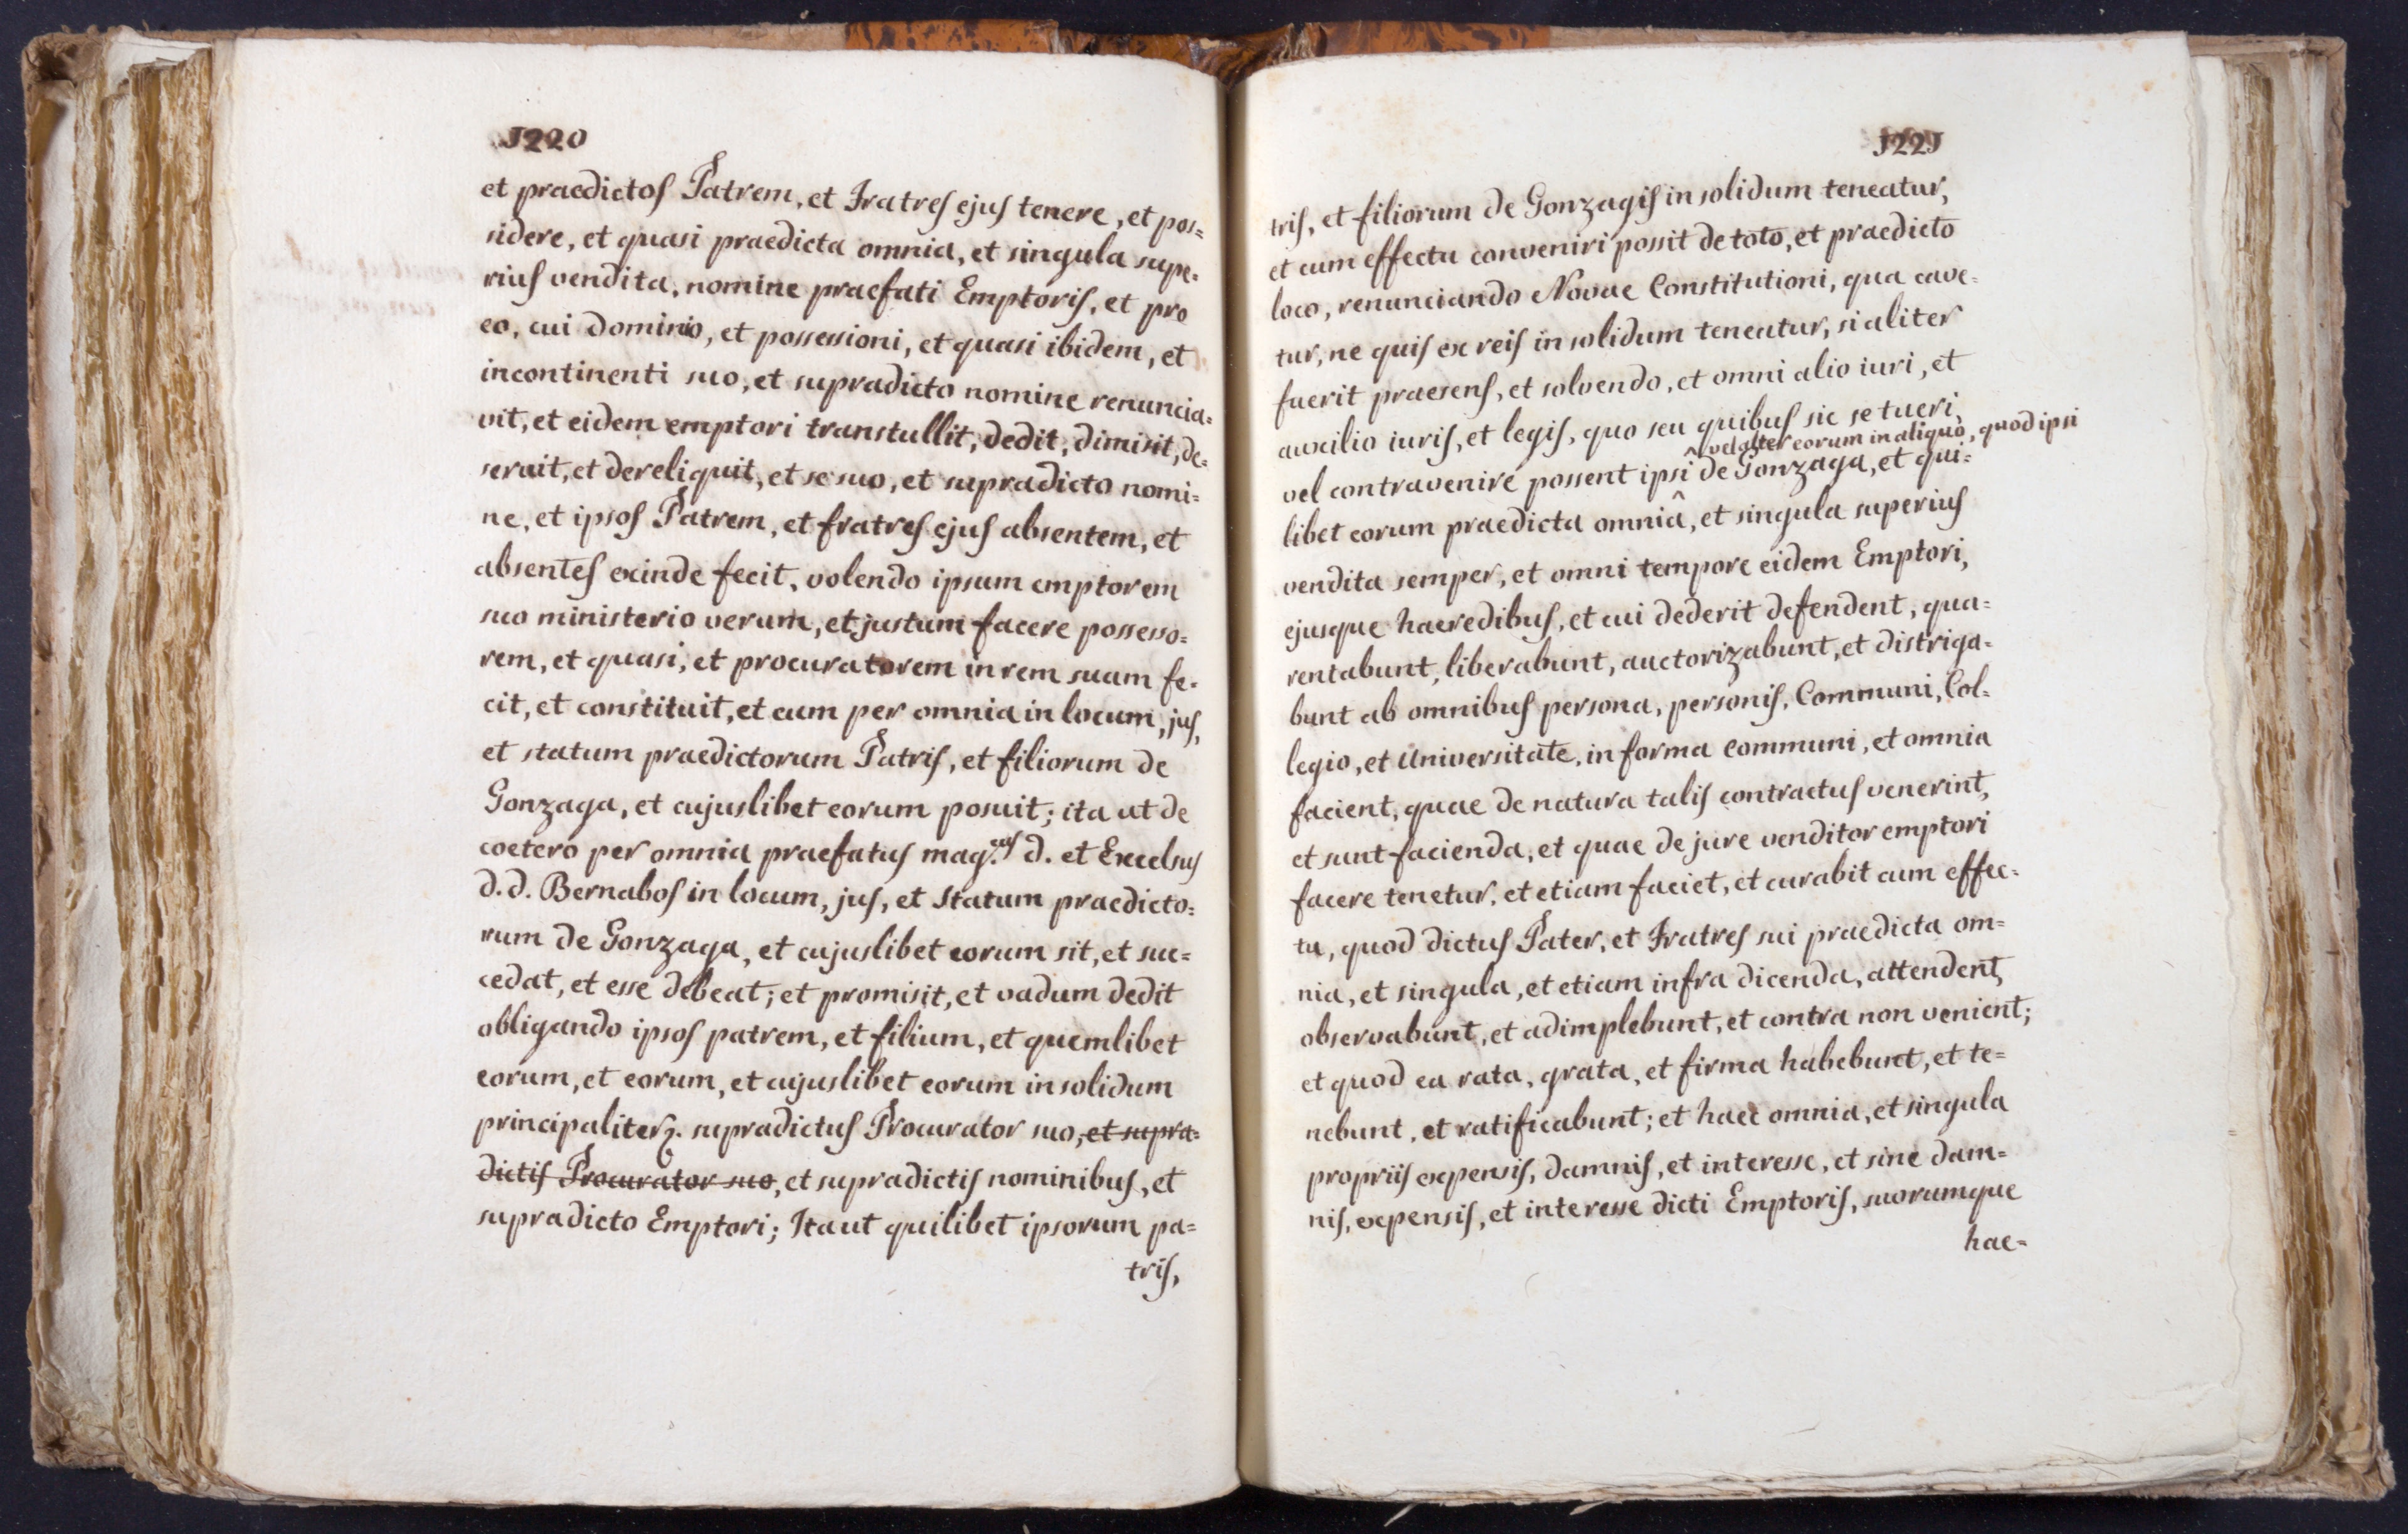 1220
et praedictos Patrem, et Fratres ejus tenere, et pos=
sidere, et quasi praedicta omnia, et singula supe=
rius vendita, nomine praefati Emptoris, et pro
eo, cui dominio, et possessioni, et quasi ibidem, et
incontinenti suo, et supradicto nomine renuncia=
vit, et eidem emptori transtullit, dedit, dimisit, de=
seruit, et dereliquit, et se suo, et supradicto nomi=
ne, et ipsos Patrem, et fratres ejus absentem, et
absentes exinde fecit, volendo ipsum emptorem
suo ministerio verum, et justum facere possesso=
rem, et quasi, et procuratorem in rem suam fe=
cit, et constituit, et eum per omnia in locum, jus,
et statum praedictorum Patris, et filiorum de
Gonzaga, et cujuslibet eorum posuit; ita ut de
coetero per omnia praefatus mag.cus d. et Excelsus
d. d. Bernabos in locum, jus, et statum praedicto=
rum de Gonzaga, et cujuslibet eorum sit, et suc=
cedat, et esse debeat; et promisit, et vadum dedit
obligando ipsos patrem, et filium, et quemlibet
eorum, et eorum, et cujuslibet eorum in solidum
principaliter supradictus Procurator suo, et supra=
dictis Procurator suo, et supradictis nominibus, et
supradicto Emptori; Ita ut quilibet ipsorum pa=
tris,
1221
tris, et filiorum de Gonzagis in solidum teneatur,
et cum effectu conveniri possit de toto, et praedicto
loco, renunciando Novae Constitutioni, qua cave=
tur, ne quis ex reis in solidum teneatur, si aliter
fuerit praesens, et solvendo, et omni alio iuri, et
auxilio iuris, et legis, quo seu quibus sic se tueri,
^ vel alter eorum in aliquo, quod ipsi
vel contravenire possent ipsi ^ de Gonzaga, et qui=
libet eorum praedicta omnia ^, et singula superius
vendita semper, et omni tempore eidem Emptori,
ejusque haeredibus, et cui dederit defendent, qua=
rentabunt, liberabunt, auctorizabunt, et distriga=
bunt ab omnibus persona, personis, Communi, Col=
legio, et Universitate, in forma communi, et omnia
facient, quae de natura talis contractus venerint,
et sunt facienda, et quae de jure venditor emptori
facere tenetur, et etiam faciet, et curabit cum effec=
tu, quod dictus Pater, et Fratres sui praedicta om=
nia, et singula, et etiam infra dicenda, attendent,
observabunt, et adimplebunt, et contra non venient;
et quod ea rata, grata, et firma habebunt, et te=
nebunt, et ratificabunt; et haec omnia, et singula
propriis expensis, damnis, et interesse, et sine dam=
nis, expensis, et interesse dicti Emptoris, suorumque
hae=